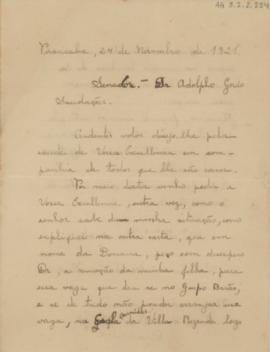 Piracicaba, 24 de Novembro de 1921.
Senador. - Dr Adolpho Gordo
Saudações.
Ardentes votos dirijo-lhe pela
saude de Vossa Excellencia em com-
panhia de todos que lhe são caros.
Por meio desta venho pedir a
Vossa Excellencia, outra vez, como o
senhor sabe da minha situação, como
expliquei na outra carta, que em
nome da
a remoção da minha filha, para
essa vaga que deu-se no Grupo Barão,
e se de tudo não poder arranjar essa
vaga, na da Villa Rezende logo